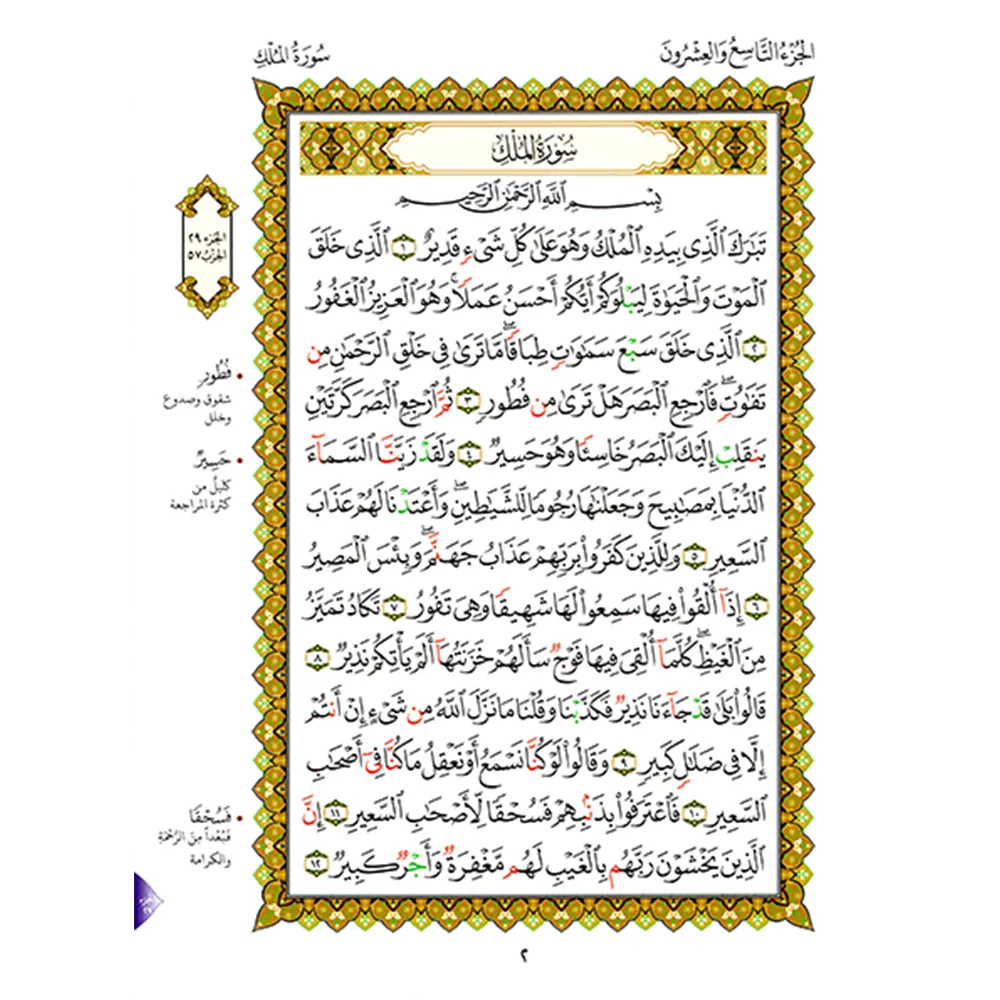 الجُزْءُ التَّاسِعُ وَالعِشْرُونَ
سُورَةُ المُلْكِ
سُورَةُ المُلْكِ
بِسْمِ اللَّهِ الرَّحْمَٰنِ الرَّحِيمِ
تَبَٰرَكَ ٱلَّذِى بِيَدِهِ ٱلْمُلْكُ وَهُوَ عَلَىٰ كُلِّ شَىْءٍ قَدِيرٌ ١ ٱلَّذِى خَلَقَ
ٱلْمَوْتَ وَٱلْحَيَوٰةَ لِيَبْلُوَكُمْ أَيُّكُمْ أَحْسَنُ عَمَلًا ۚ وَهُوَ ٱلْعَزِيزُ ٱلْغَفُورُ
٢ ٱلَّذِى خَلَقَ سَبْعَ سَمَٰوَٰتٍ طِبَاقًا ۖ مَّا تَرَىٰ فِى خَلْقِ ٱلرَّحْمَٰنِ مِن
تَفَٰوُتٍ ۖ فَٱرْجِعِ ٱلْبَصَرَ هَلْ تَرَىٰ مِن فُطُورٍ ٣ ثُمَّ ٱرْجِعِ ٱلْبَصَرَ كَرَّتَيْنِ
يَنقَلِبْ إِلَيْكَ ٱلْبَصَرُ خَاسِئًا وَهُوَ حَسِيرٌ ٤ وَلَقَدْ زَيَّنَّا ٱلسَّمَآءَ
ٱلدُّنْيَا بِمَصَٰبِيحَ وَجَعَلْنَٰهَا رُجُومًا لِّلشَّيَٰطِينِ ۖ وَأَعْتَدْنَا لَهُمْ عَذَابَ
ٱلسَّعِيرِ ٥ وَلِلَّذِينَ كَفَرُوا۟ بِرَبِّهِمْ عَذَابُ جَهَنَّمَ ۖ وَبِئْسَ ٱلْمَصِيرُ
٦ إِذَآ أُلْقُوا۟ فِيهَا سَمِعُوا۟ لَهَا شَهِيقًا وَهِىَ تَفُورُ ٧ تَكَادُ تَمَيَّزُ
مِنَ ٱلْغَيْظِ ۖ كُلَّمَآ أُلْقِىَ فِيهَا فَوْجٌ سَأَلَهُمْ خَزَنَتُهَآ أَلَمْ يَأْتِكُمْ نَذِيرٌ ٨
قَالُوا۟ بَلَىٰ قَدْ جَآءَنَا نَذِيرٌ فَكَذَّبْنَا وَقُلْنَا مَا نَزَّلَ ٱللَّهُ مِن شَىْءٍ إِنْ أَنتُمْ
إِلَّا فِى ضَلَٰلٍ كَبِيرٍ ٩ وَقَالُوا۟ لَوْ كُنَّا نَسْمَعُ أَوْ نَعْقِلُ مَا كُنَّا فِىٓ أَصْحَٰبِ
ٱلسَّعِيرِ ١٠ فَٱعْتَرَفُوا۟ بِذَنۢبِهِمْ فَسُحْقًا لِّأَصْحَٰبِ ٱلسَّعِيرِ ١١ إِنَّ
ٱلَّذِينَ يَخْشَوْنَ رَبَّهُم بِٱلْغَيْبِ لَهُم مَّغْفِرَةٌ وَأَجْرٌ كَبِيرٌ ١٢
الجزء ٢٩
الحزب ٥٧
فُطُورٍ
شقوق وصدوع
وخلل
حَسِيرٌ
كليلٌ من
كثرة المراجعة
فَسُحْقًا
فبُعْداً مِنَ الرَّحْمَةِ
والكرامة
٢